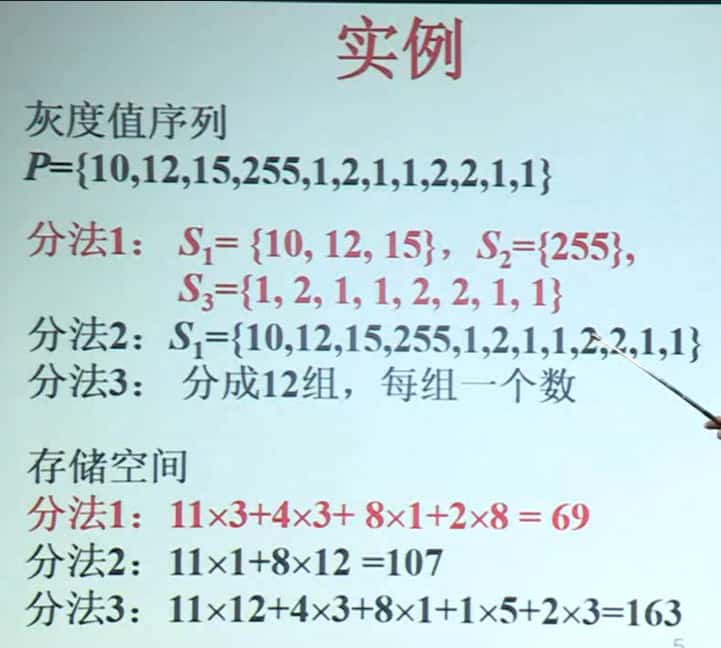 实例
灰度值序列
P={10,12,15,255,1,2,1,1,2,2,1,1}
分法1： S₁= {10, 12, 15}，S₂={255},
S₃={1, 2, 1, 1, 2, 2, 1, 1}
分法2：S₁={10,12,15,255,1,2,1,1,2,2,1,1}
分法3： 分成12组，每组一个数
存储空间
分法1：11×3+4×3+ 8×1+2×8 = 69
分法2：11×1+8×12 =107
分法3：11×12+4×3+8×1+1×5+2×3=163
5